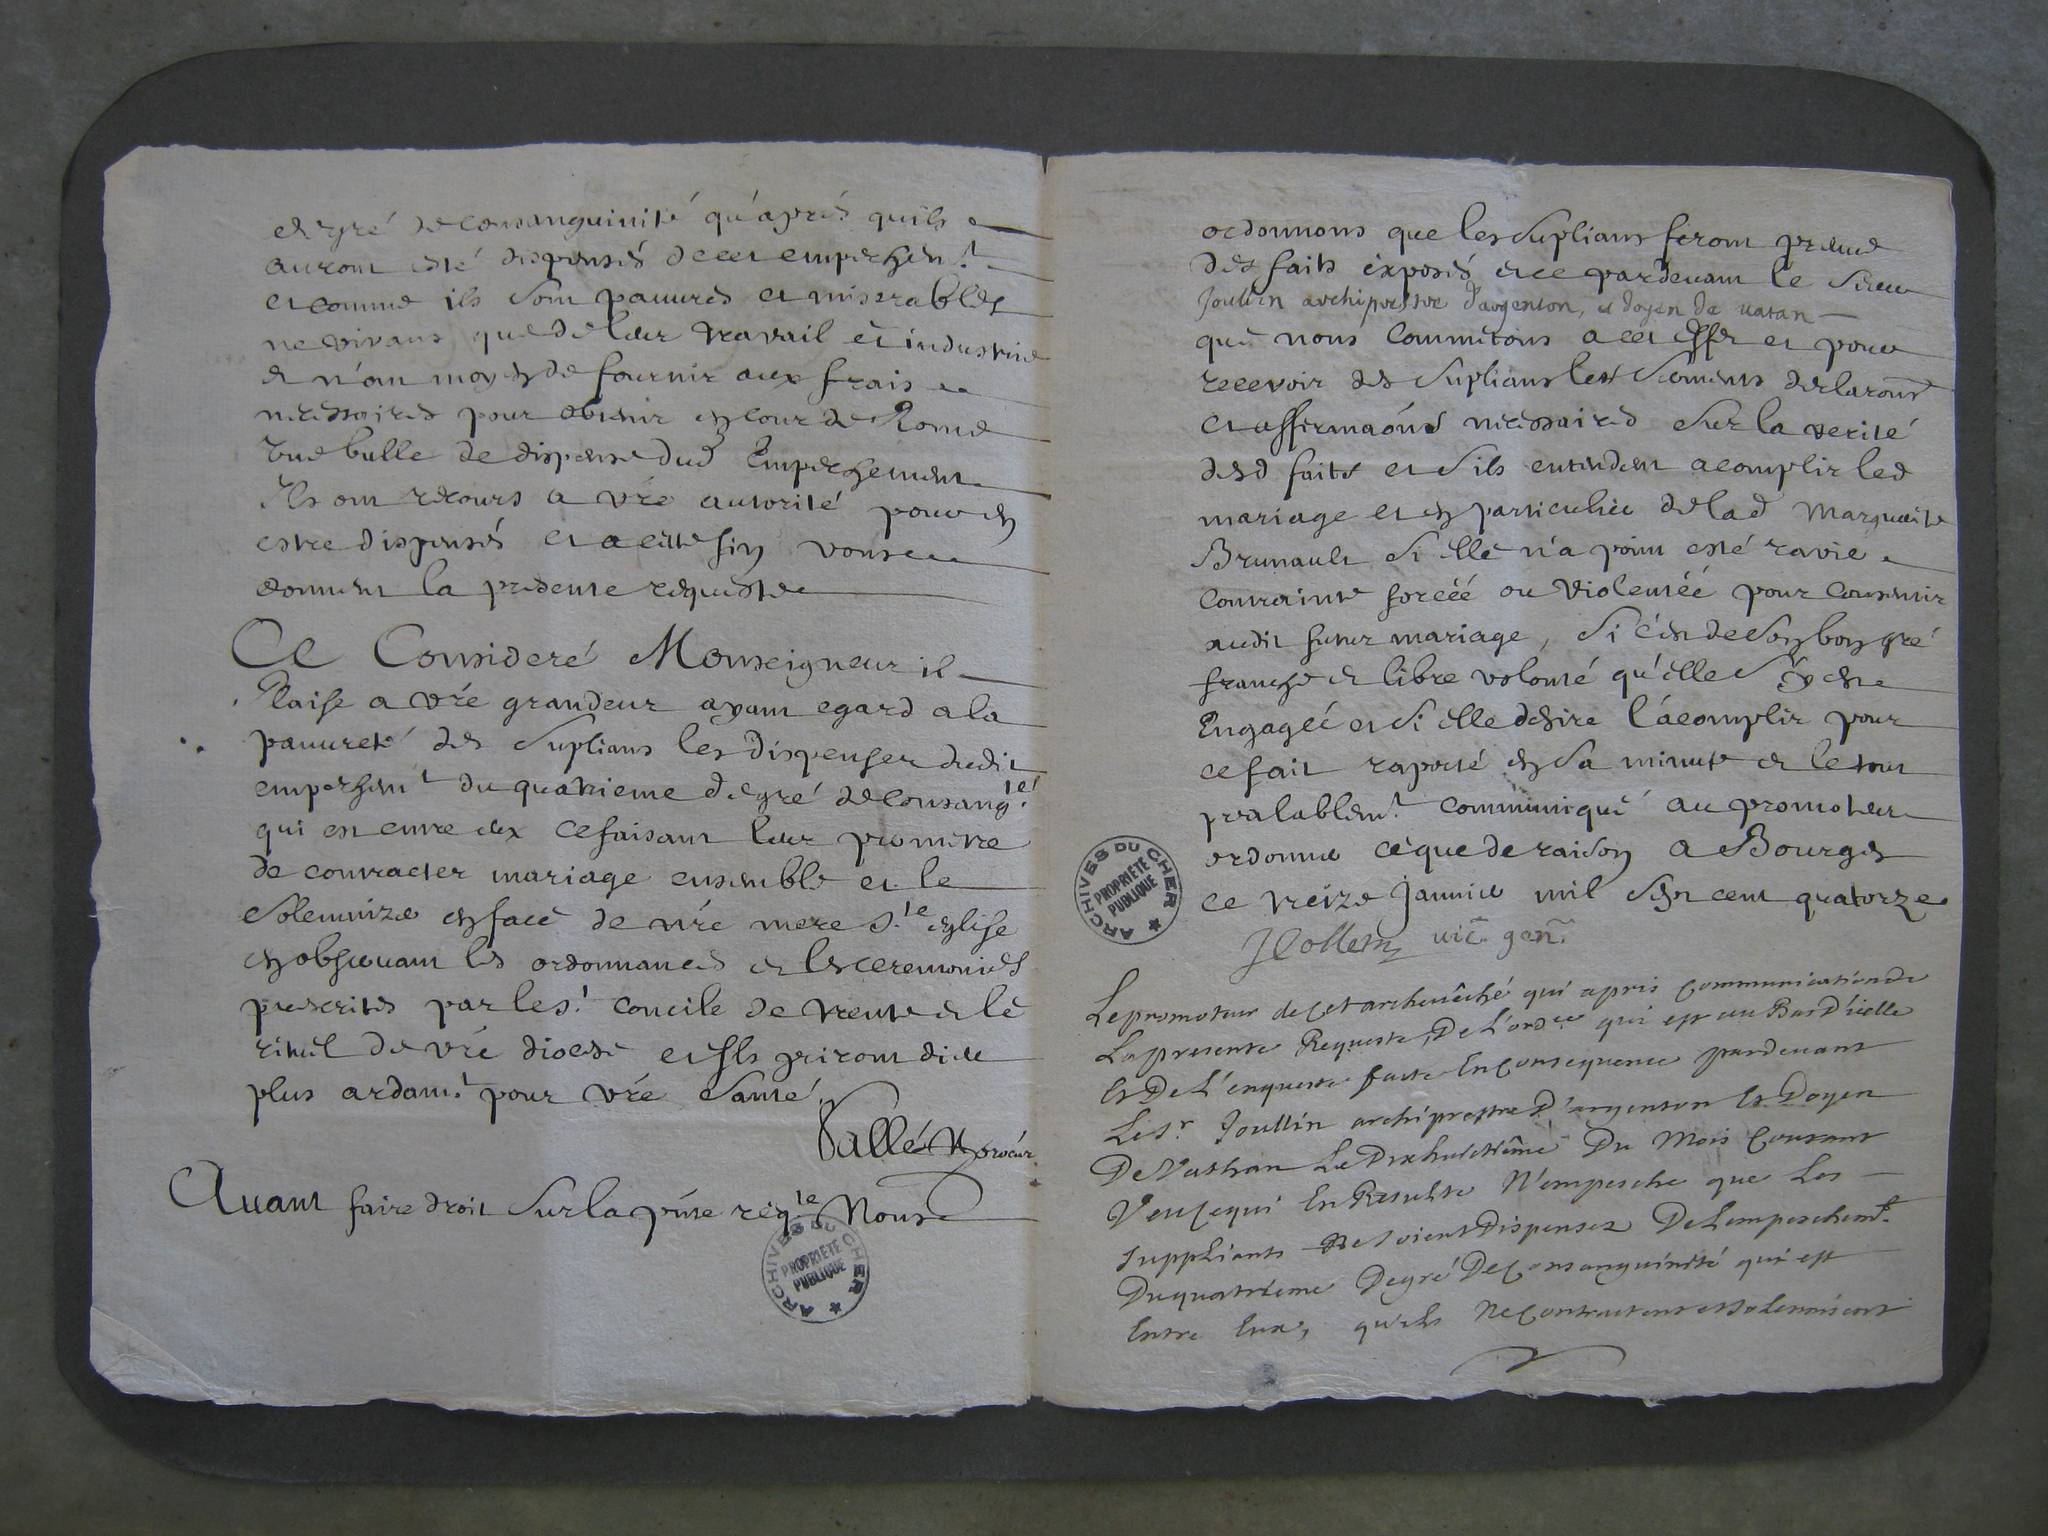 degré de consanguinité qu'aprés quils
auront esté dispensés de cet empeschemt
et comme ils sont pauures et miserables
ne vivans que de leur travail et industrie
et n'ont moyen de fournir aux frais
necessaires pour obtenir en cour de Rome
une bulle de dispense dud Empeschement
Ils ont recours a vre autorité pour en
estre dispensés et a cette fin vous
donnent la presente requeste
Ce Consideré Monseigneur il
Plaise a vre grandeur ayant egard a la
pauureté des suplians les dispenser dudit
empeschemt du quatrieme degré de consangté
qui est entre eux ce faisant leur promettre
de contracter mariage ensemble et le
solemnizer en face de nre mere ste eglise
en obseruant les ordonnances et les ceremonies
prescrites par le st concile de trente et le
rituel de vre diocese et Ils priront dieu
plus ardamt pour vre santé
Vallé procur
Auant faire droit sur la pnte reqte Nous
ordonnons que les suplians feront preuue
des faits exposés et ce pardeuant le sieur
Joullin archiprestre d'argenton, et doyen de vatan
que nous commetons a cet effet et pour
recevoir des suplians les serments declarons
et affirmaons necessaires sur la verité
desd faits et s'ils entendent acomplir led
mariage et en particulier de lad Marguerite
Brunault si elle n'a point esté ravie
contrainte forcéé ou violentéé pour consentir
audit futur mariage, si c'est de son bon gré
franche et libre volonté qu'elle s'y est
Engagéé et si elle desire l'acomplir pour
ce fait raporté en sa minute et le tout
prealablemt communiqué au promoteur
ordonne ce que de raison a Bourges
ce treize januier mil sept cent quatorze
vic. gen.
Le promoteur de cet archeuêché qui apris communication de
La presente Requeste, De L'ordce qui est au Bas D'icelle
Et De L'enqueste faite En consequence pardeuant
Le sr Joullin archiprestre D'argenton Et Doyen
De Vathan Le Dixhuictième Du Mois Courant
Veu ce qui En Resulte N'empesche que Les
suppliants ne soient Dispensez De Lempeschemt
Du quatrieme Degré De Consanguinité qui est
Entre Eux, qu'ils Ne Contractent et solemnisent
ARCHIVES DU CHER
PROPRIÉTÉ
PUBLIQUE
ARCHIVES DU CHER
PROPRIÉTÉ
PUBLIQUE